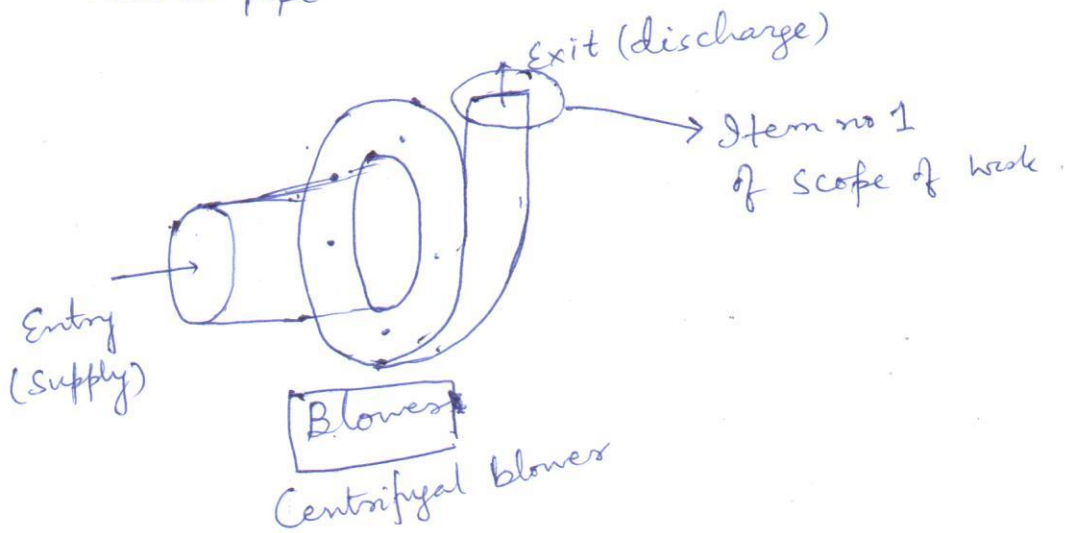 Exit (discharge)
Item no 1
of scope of work.
Entry
(Supply)
Blower
Centrifugal blower